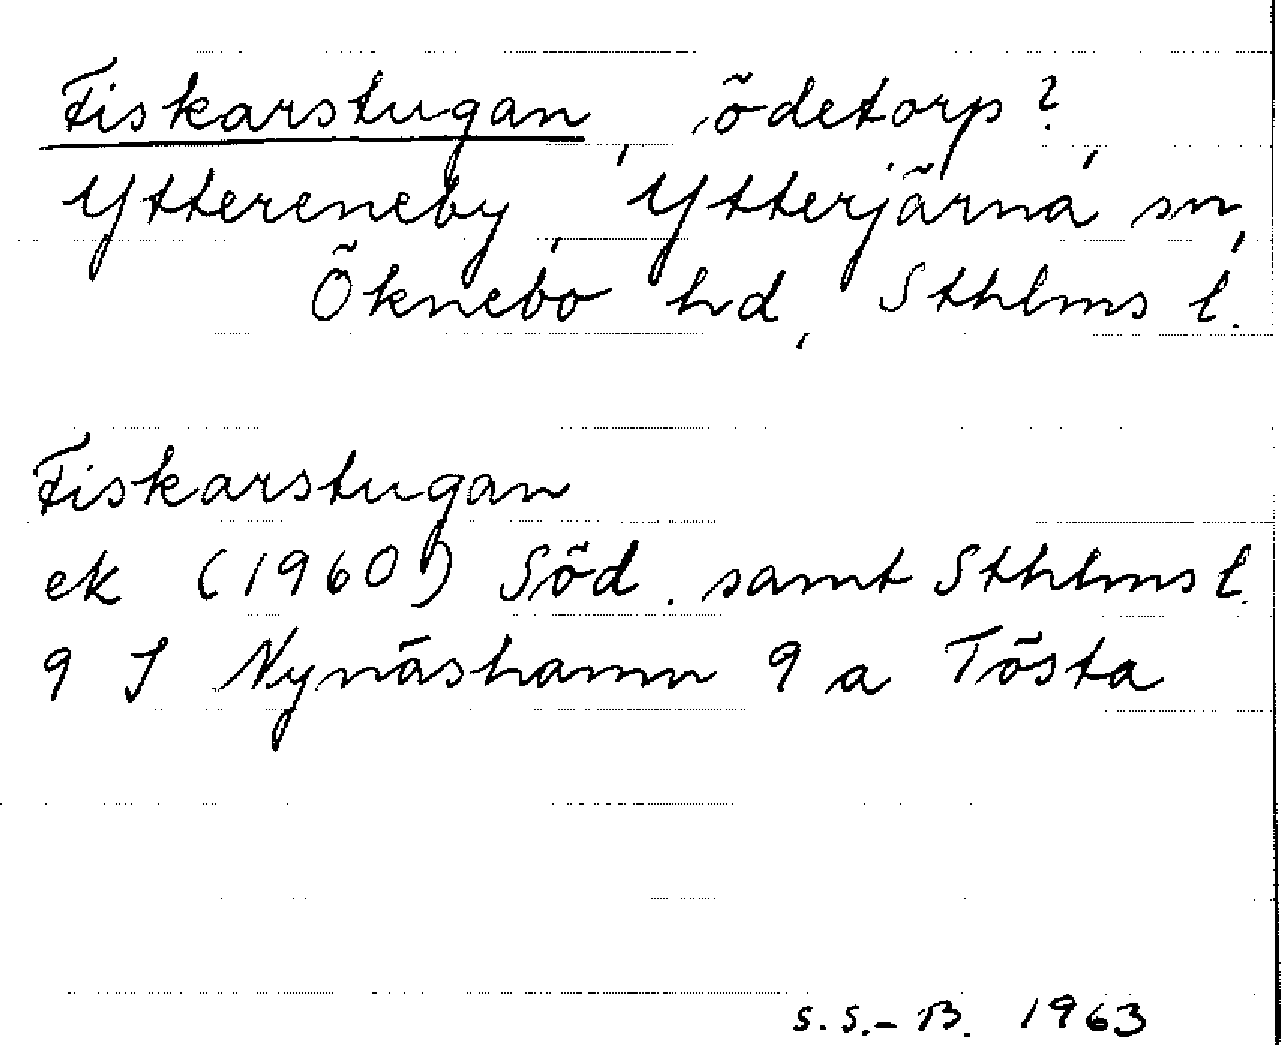 Fiskarstugan, ödetorp?,
Yttereneby, Ytterjärna sn,
Öknebo hd, Sthlms l.
Fiskarstugan
ek (1960) Söd. samt Sthlms l.
9 I Nynäshamn 9 a Tösta
S.S.-B. 1963